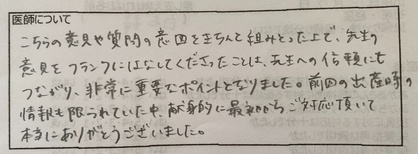 医師について
こちらの意見や質問の意図をきちんと組みとった上で、先生の
意見をフランクにはなしてくださったことは、先生への信頼にも
つながり、非常に重要なポイントとなりました。前回の出産時の
情報も限られていた中、献身的に最初からご対応頂いて
本当にありがとうございました。